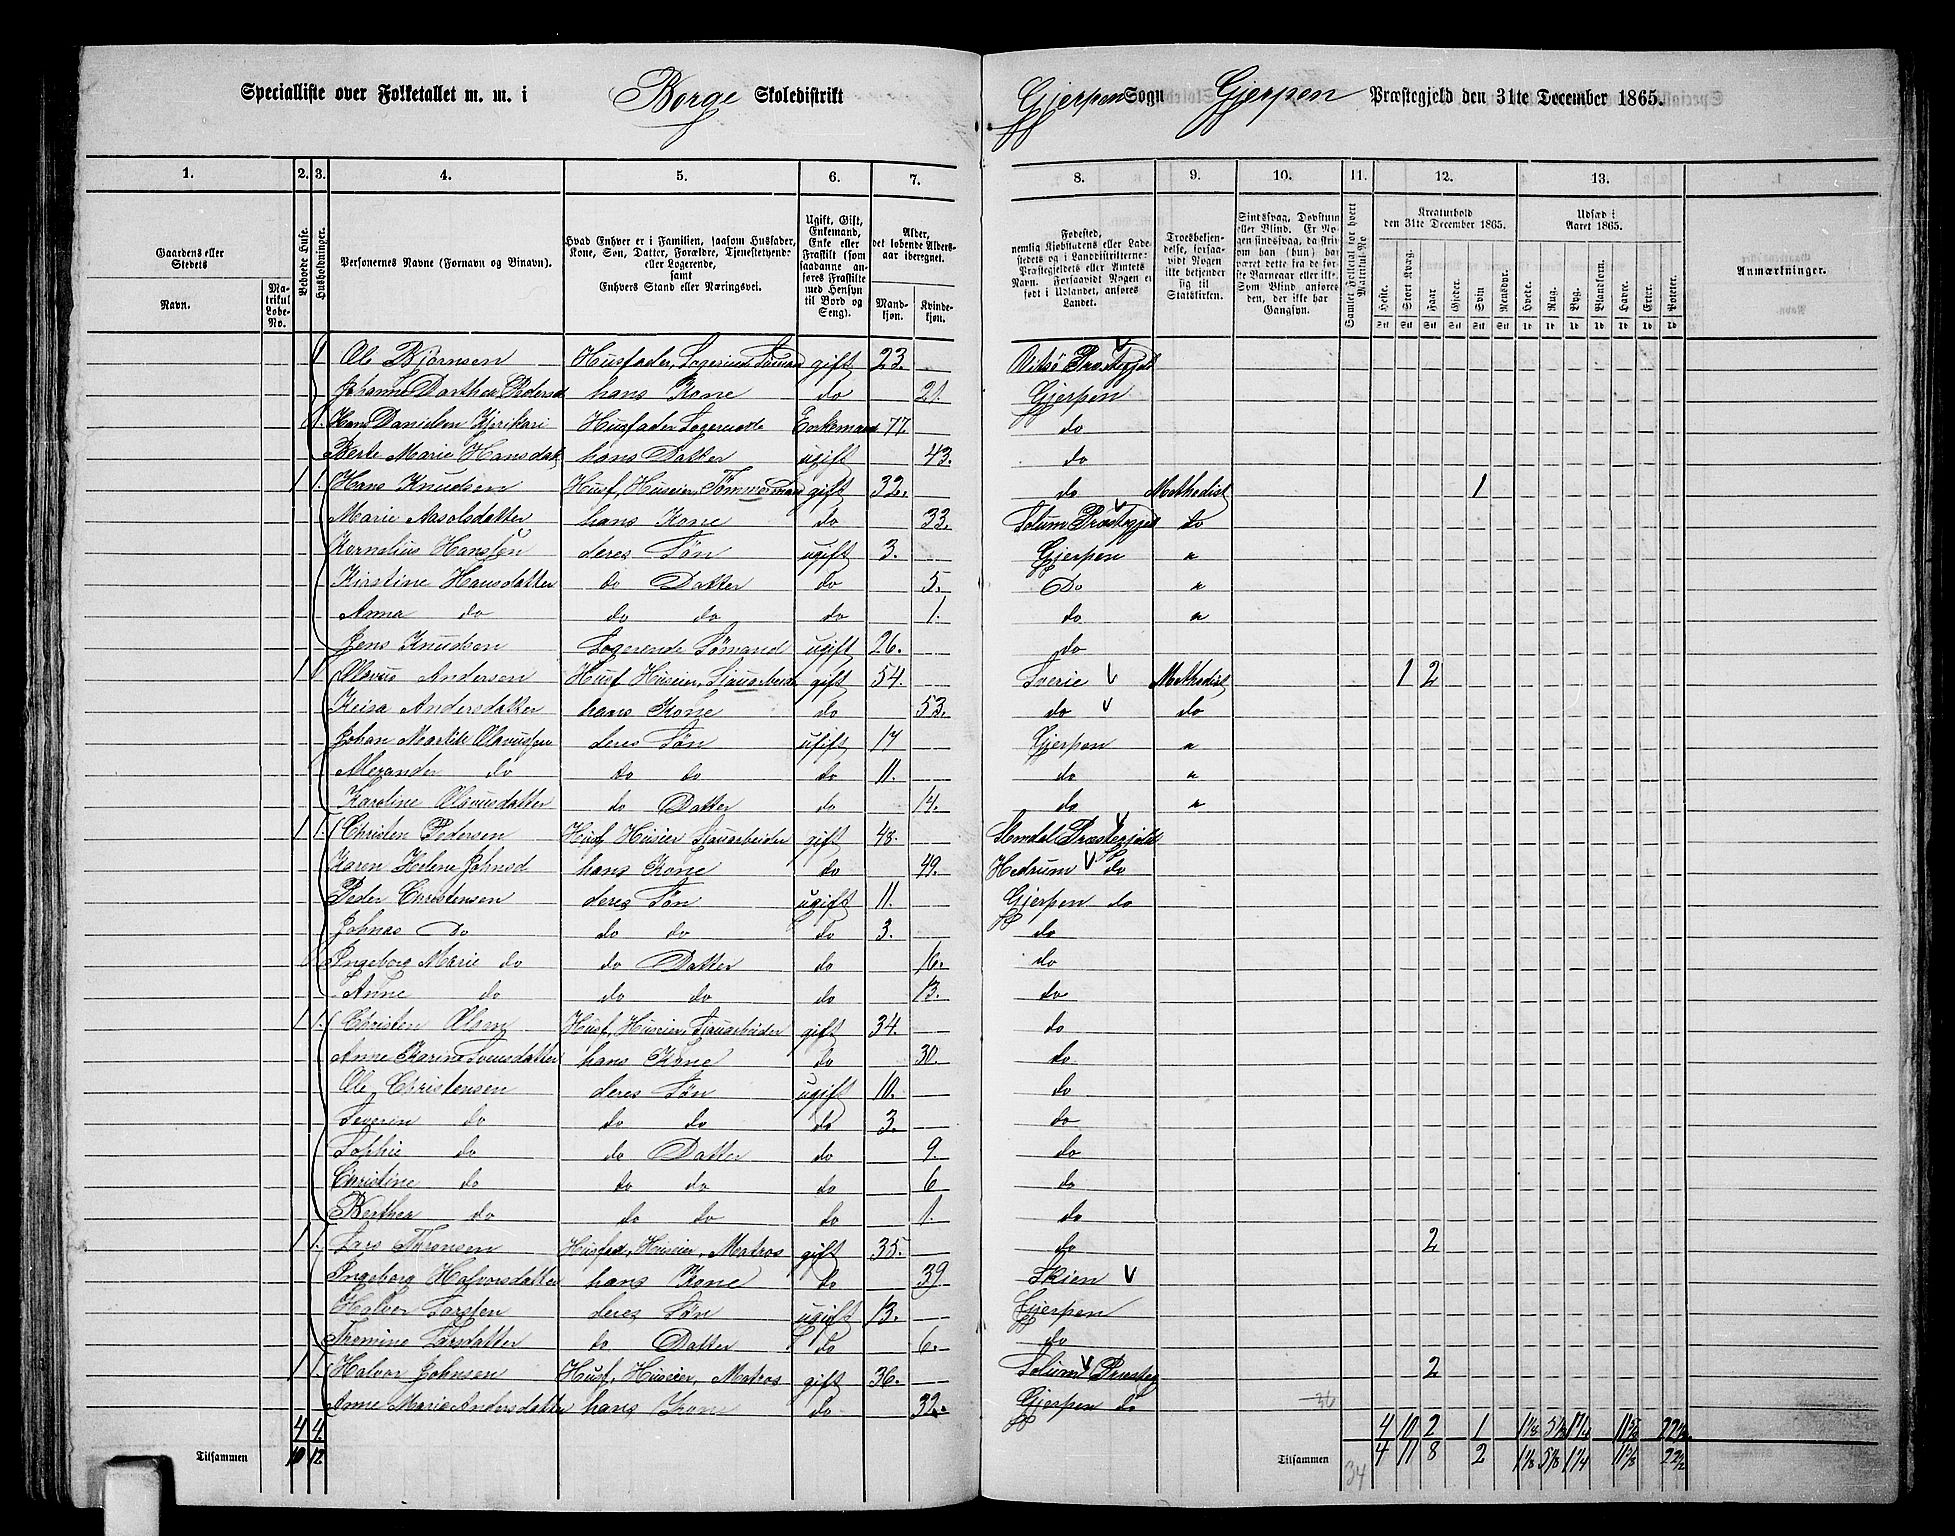 Specialliste over Folketallet m. m. i Borge Skoledistrikt Gjerpen Sogn Gjerpen Præstegjeld den 31te December 1865.
1. 2. 3. 4. 5. 6. 7. 8. 9. 10. 11. 12. 13.
Gaardens eller Stedets Navn. Matrikul Løbe-No. Beboede Huse. Husholdninger. Personernes Navne (Fornavn og Binavn). Hvad Enhver er i Familien, saasom Husfader, Kone, Søn, Datter, Forældre, Tjenestetyende eller Logerende, samt Enhvers Stand eller Næringsvei. Ugift, Gift, Enkemand, Enke eller Fraskilt (som saadanne anføres Fraskilte med Hensyn til Bord og Seng). Alder, det løbende Aldersaar iberegnet. Mandkjøn. Kvindekjøn.
Fødested, nemlig Kjøbstadens eller Ladestedets og i Landdistrikterne: Præstegjeldets eller Amtets Navn. Forsaavidt Nogen er født i Udlandet, anføres Landet. Troesbekjendelse, forsaavidt Nogen ikke bekjender sig til Statskirken. Sindssvag, Døvstum eller Blind. Gamlet Folketal for hvert Matrikul-No Kreaturhold den 31te December 1865. Udsæd i Aaret 1865. Anmærkninger.
Heste. Stort Kvæg. Faar. Gjeder. Svin. Rensdyr. Hvede. Rug. Byg. Blandkorn. Havre. Erter. Poteter.
1 Ole Bjørnsen Husfader, Logerende Sømand gift 23. Præstegjeld
Johanne Dorthea Pedersd hans Kone do 21. Gjerpen
1. Hans Danielsen Husfader Logerende Enkemand 77. do
Berte Marie Hansdat hans Datter ugift 43. do
1 1. Hans Knudsen Husf, Huseier, Tømmermand gift 32. do Methodist 1
Marie Aasolsdatter hans Kone do 33. Solum Præstegjeld do
Kornelius Hansen deres Søn ugift 3. Gjerpen "
Kirstine Hansdatter do Datter do 5. Do "
Anna do do do do 1. do "
Jens Knudsen Logerende Sømand ugift 26. do
1 1 Olavus Andersen Husf Huseier, Sauarbeider gift 54. Sverie Methodist 1 2
Keisa Andersdatter hans Kone do 53. do do
Johan Martin Olavussen deres Søn ugift 17 Gjerpen "
Alexander do do do do 11. do "
Karoline Olavusdatter do Datter do 14. do "
1 1. Christen Pedersen Husf Huseier Sauarbeider gift 48. Slemdal Præstegjeld
Karen Helene Johnsd hans Kone do 49. Hedrum do
Peder Christensen deres Søn ugift 11. Gjerpen do
Johnas Do do do do 3. do
Ingeborg Marie do do Datter do 16. do
Anne do do do do 13. do
1 1. Christen Olsen Husf, Huseier, Sauarbeider gift 34. do
Anne Karine Svensdatter hans Kone do 30. do
Ole Christensen deres Søn ugift 10. do
Severin do do do do 3. do
Sophie do do Datter do 9. do
Christine do do do do 6 do
Berthea do do do do 1. do
1 1. Lars Thronsen Husfad, Huseier, Matros gift 35. do 2
Ingeborg Halvorsdatter hans Kone do 39 Skien
Halvor Larssen deres Søn ugift 13. Gjerpen
Thomine Larsdatter do Datter do 6. do
1 1. Halvor Johnsen Husf, Huseier, Matros gift 36. Solum Præsteg 2
Anne Marie Andersdatter hans Kone do 32. Gjerpen do
4 4. 4 10 2 1 1 1/8 1 1/4
Tilsammen 10 12 Tilsammen 34 4 11 8 2 1 1/8 5 1/8 1 1/4 22 1/2